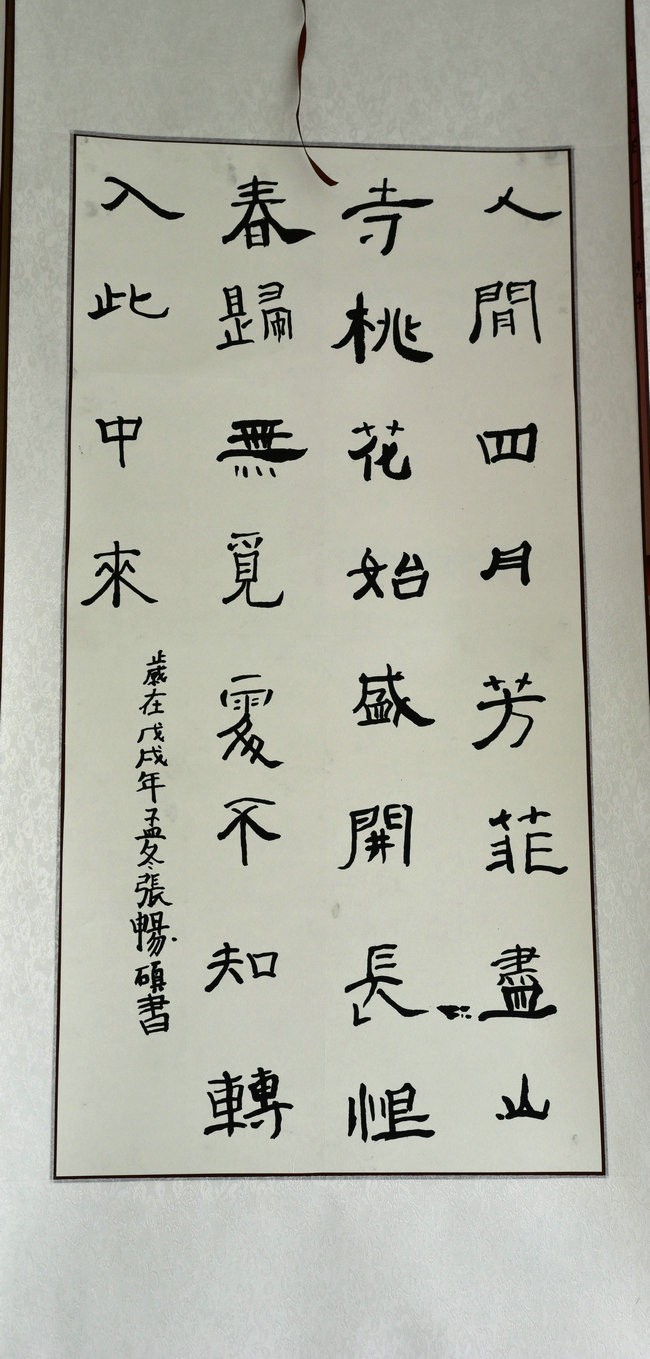 人間四月芳菲盡山
寺桃花始盛開長恨
春歸無覓處不知轉
入此中來
歲在戊戌年孟冬張暢碩書